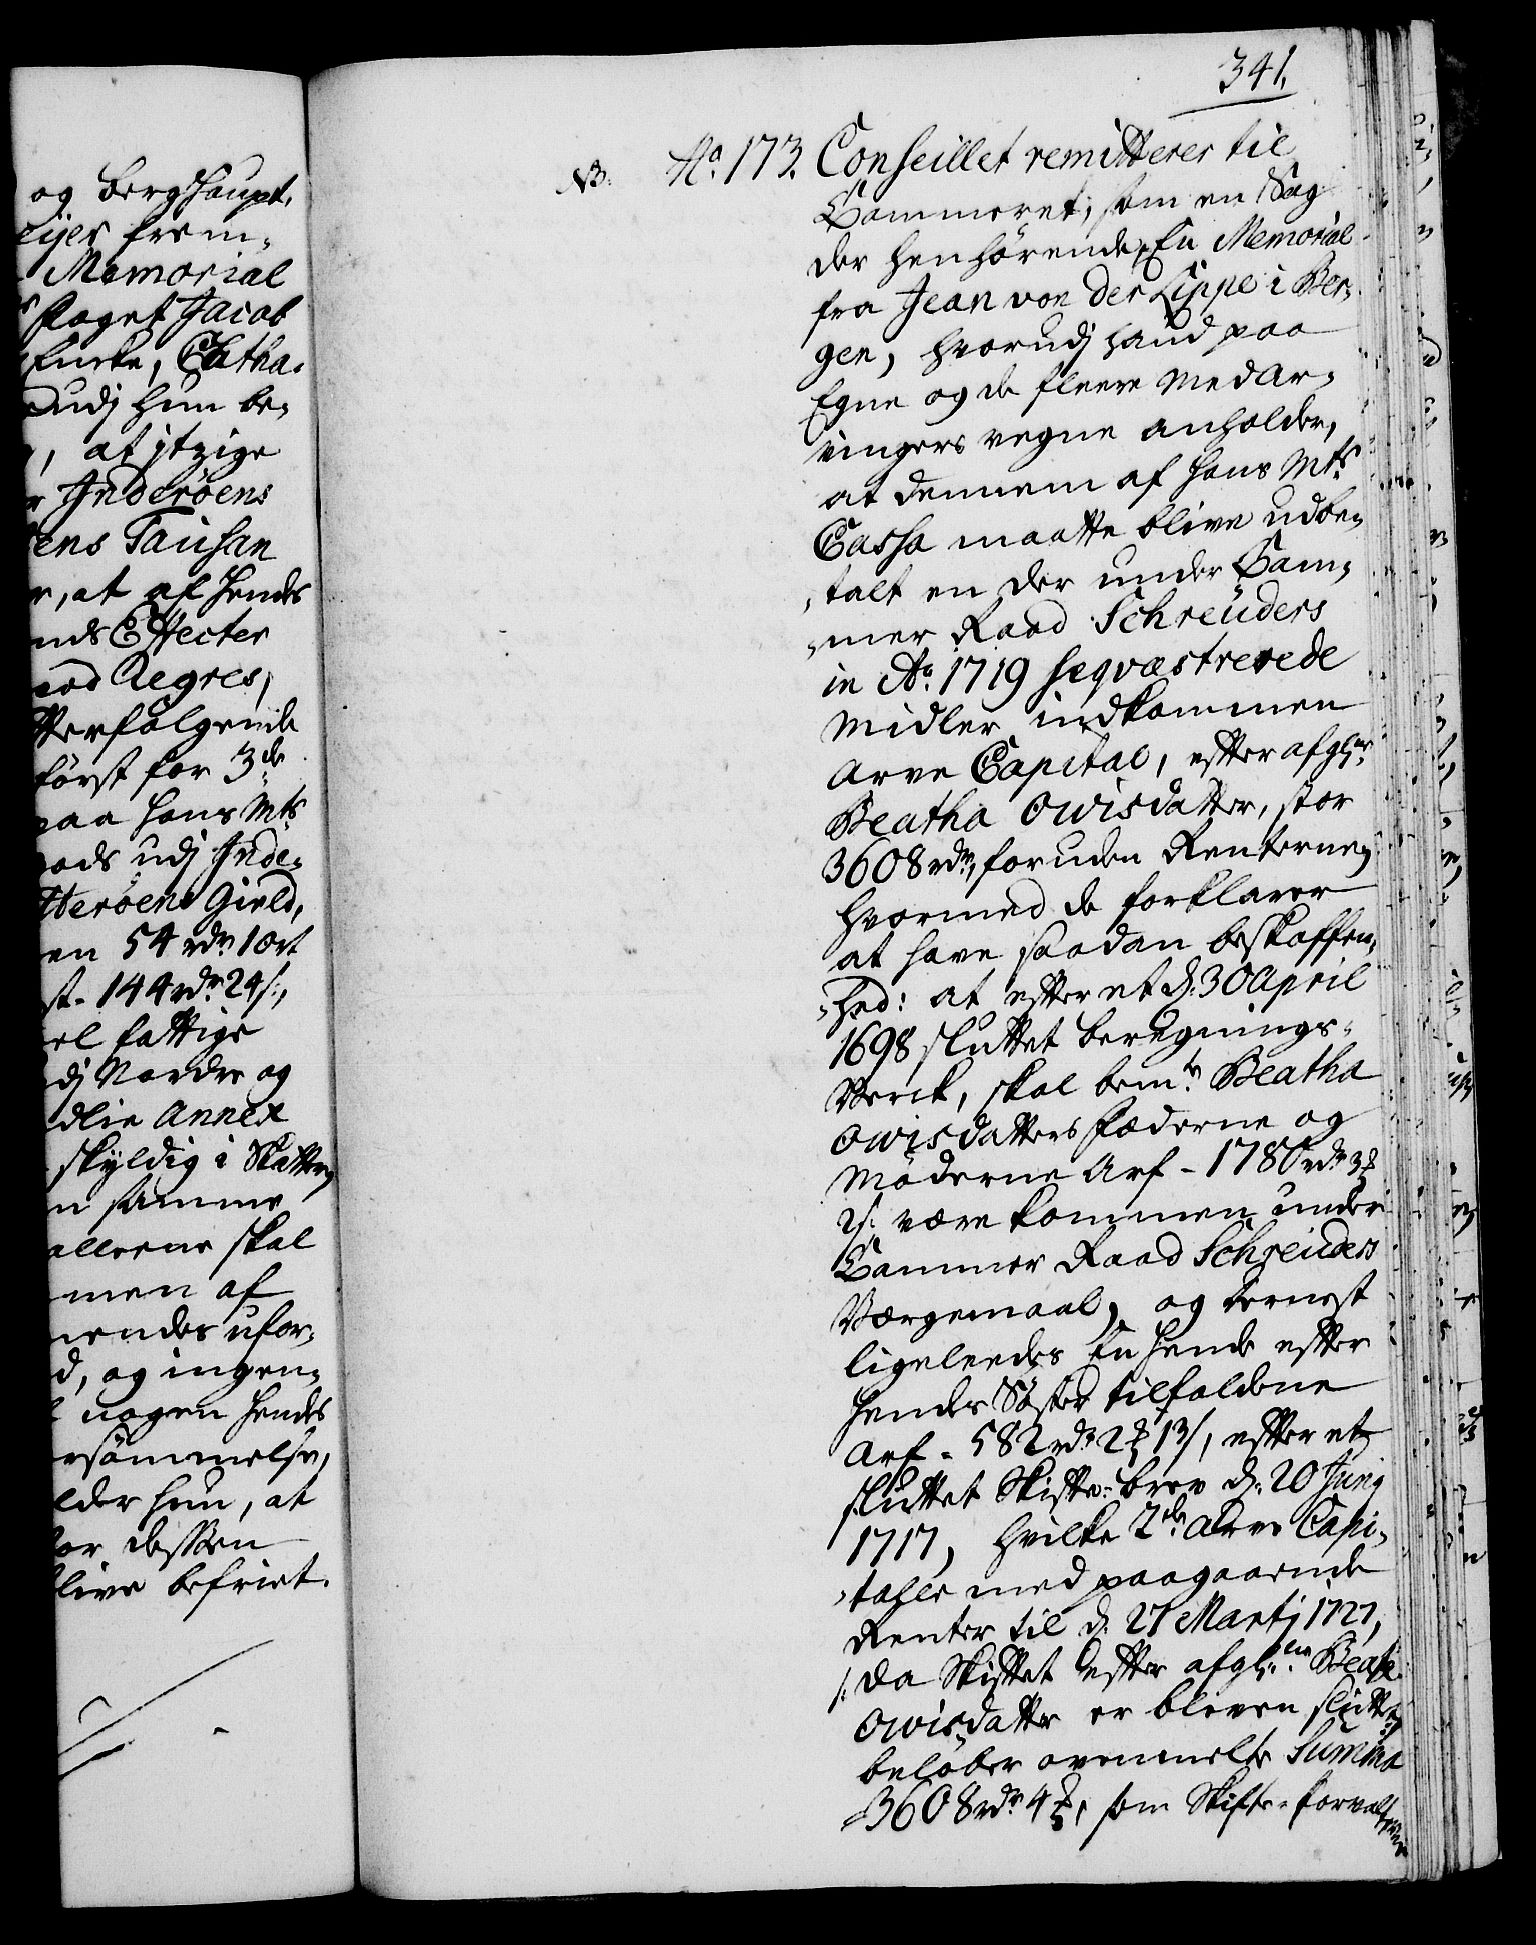 og Berghaupt,
Memorial
Foget Jacob
Encke, Catha-
udj hun be-
, at itzige
Inderöens
ens Tausan
, at af hendes
Effecter
Regres,
efterfölgende
först for 3de
paa hans Mts
udj Inde-
Gield,
en 54 rdr 1 ort
st. 144 rdr 24 s,
el fattige
dj Nordre og
Annex
skyldig i Skatter
n samme
allerne skal
men af
nendes ufor-
d, og ingen-
nogen hendes
rsömmelse,
lder hun, at
for dessen
blive befriet.
341.
NB. No. 173. Conseillet remitterer til
Cammeret, som en Sag
der henhörende, En Memorial
fra Jean von der Lippe i Ber-
gen, hvorudj hand paa
Egne og de fleere Medar-
vingers vegne anholder,
at dennem af hans Mts
Cassa maatte blive udbe-
talt en der under Cam-
mer Raad Schreüders
in Ao. 1719 seqvæstrerede
Midler indkommen
Arve Capital, efter afgl:ne
Beatha Owisdatter, stor
3608 rdr, foruden Renterne,
hvormed de forklarer
at have saadan beskaffen-
hed: at efter et d. 30 April
1698 sluttet beregnings-
Verck, skal bemte Beatha
Owisdatters Fæderne og
Möderne Arf - 1780 rdr 3 ₰
2 s. være kommen under
Cammer Raad Schreüders
Værgemaal, og dernest
ligeleedes En hende efter
hendes Söster tilfaldene
Arf - 582 rdr 2 ₰ 13 s, efter et
sluttet Skifte-brev d. 20 Junij
1717, hvilke 2de Arve Capi-
taler med paagaaende
Renter til d. 27 Martj 1727,
/: da Skiftet efter afgl:ne Beate
Owisdatter er bleven sluttet
belöber ovenmelte Summa
3608 rdr 4 ₰, som Skifte-forvalterne